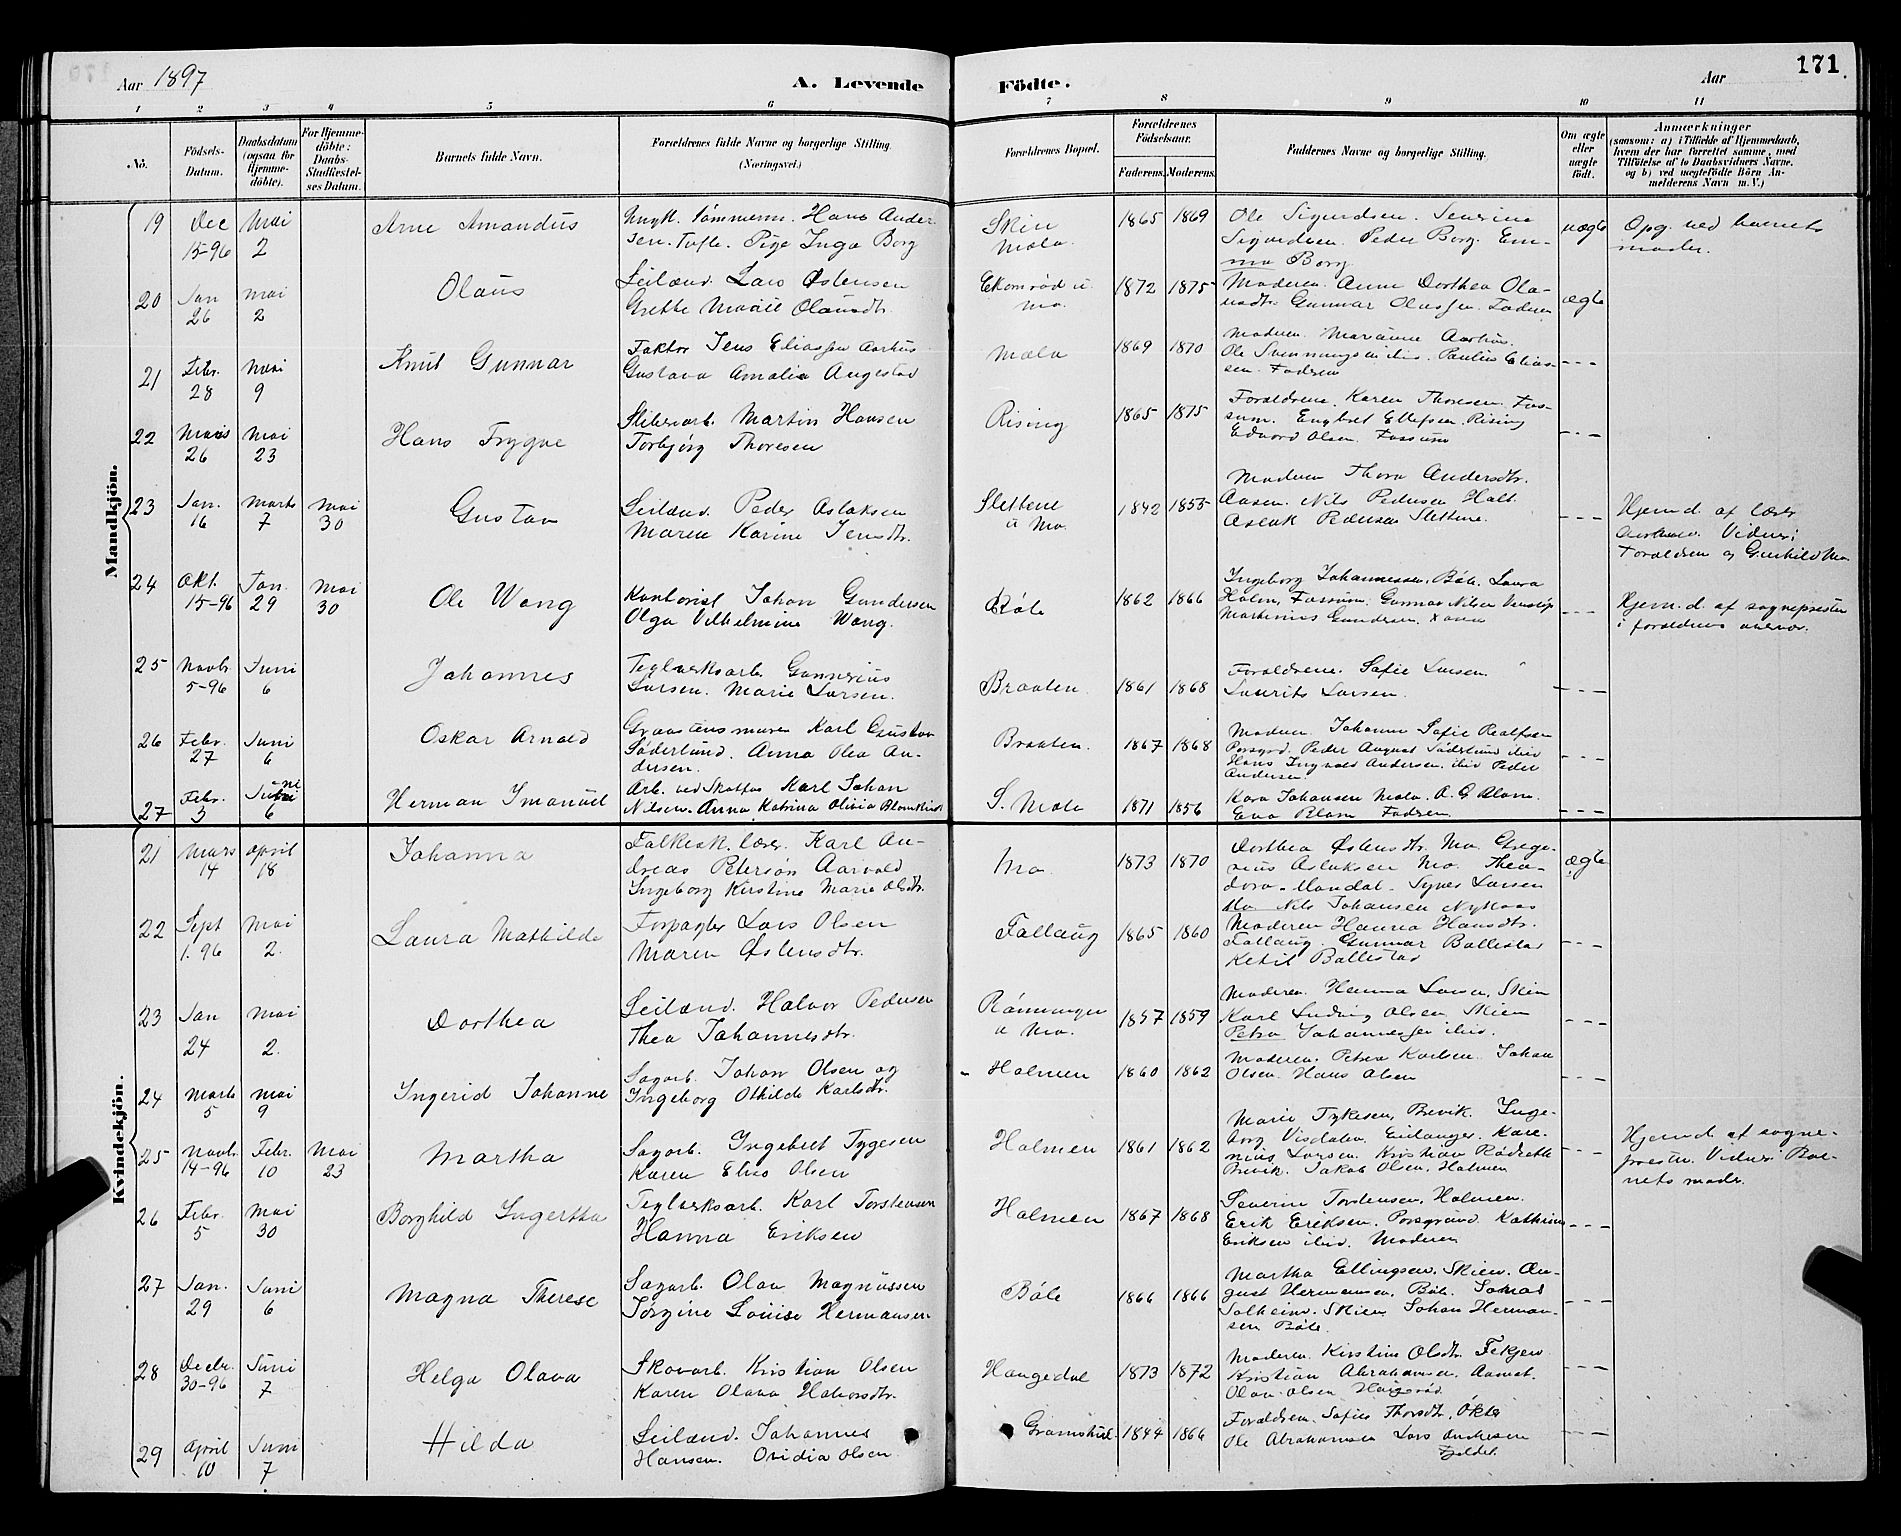 171
Aar 1897
A. Levende Födte.
Aar
1 2 3 4 5 6 7 8 9 10 11
No.
Födsels-Datum.
Daabsdatum (ogsaa for Hjemme-döbte).
For Hjemme-döbte: Daabs-Stadfæstel-ses Datum.
Barnets fulde Navn.
Forældrenes fulde Navne og borgerlige Stilling. (Næringsvei.)
Forældrenes Bopæl.
Forældrenes Födselsaar.
Faderens. Moderens.
Faddernes Navne og borgerlige Stilling.
Om ægte eller uægte födt.
Anmærkninger
(saasom: a) i Tilfælde af Hjemmedaab, hvem der har forrettet samme, med Tilföielse af to Daabsvidners Navne. og b) ved uægtefödte Börn An-melderens Navn m. V.)
Mandkjön.
19 Dec 15-96 Mai 2 Arne Amandus
Ungk. Tömmerm. Hans Ander-
sen. Tufte. Pige Inga Borg
Skien Mæla. 1865 1869
Ole Sigurdsen. Severine
Sigurdsen. Peder Borg. Em-
ma Borg
uægte
Opg. ved barnets
moder.
20 Jan 26 Mai 2 Olaus
Leilænd. Lars Østensen
Grethe Marie Olausdtr.
Ekornrød u. Mo. 1872 1875
Moderen. Anne Dorthea Ola-
usdtr. Gunnar Olassen. Faderen
ægte
21 Febr. 28 Mai 9 Knut Gunnar
Faktor Jens Eliassen Aarhus
Gustava Amalia Augestad
Mæla 1869 1870
Moderen. Marianne Aarhus.
Ole Svenningsen ibid. Pauline Elias-
sen. Faderen
---
22 Mars 26 Mai 23 Hans Trygve
Sliberiarb. Martin Hansen
Torbjörg Thoresen
Rising 1865 1875
Forældrene. Karen Thoresen. Fos-
sum. Engbret Ellefsen. Rising
Edvard Olsen. Fossum
---
23 Jan. 16 Marts 7 Mai 30 Gustav
Leilænd. Peder Aslaksen
Maren Karine Jensdtr.
Slettene u Mo. 1842 1855
Moderen Thora Andersdtr.
Aasen. Nils Pedersen Holt.
Aslak Pedersen Slettene.
---
Hjemd. af lærer
Vidner:
Forældrene og Gunhild Mo.
24 Okt. 15-96 Jan. 29 Mai 30 Ole Wang
Kontorist Johan Gundersen
Olga Vilhelmine Wang.
Böle 1862 1866
Ingeborg Johannessen, Böle. Laura
Holm, Fossum. Gunnar Nilsen
Martinius Gundersen.
---
Hjem.d. af sogneprestem
i forældrenes nærvær.
25 Novbr. 5-96 Juni 6 Johannes
Teglverksarb. Gunnerius
Larsen. Marie Larsen.
Braaten. 1861 1868
Forældrene. Sofie Larsen.
Laurits Larsen.
---
26 Febr. 27 Juni 6 Oskar Arnold
Graastensmurer Karl Gustav
Söderlund. Anna Olea An-
dersen.
Braaten. 1867 1868
Moderen. Johanne Sofie Realfsen
Porsgrd. Peder August Söderlund ibid
Hans Ingvald Andersen, ibid Peder
Andersen.
---
27 Febr. 3 Juni 6 Herman Imanuel
Arb. ved Skotfos Karl Johan
Nilsen. Anna Katrina Olivia Blomkvist
S. Mæla 1871 1856
Kara Johansen Mæla. A. G. Blom.
Eva Blom Faderen.
---
Kvindekjön.
21 Mars 14 April 18 Johanna
Folkesk. lærer. Karl An-
dreas Petersön Aarvold
Ingeborg Kirstine Marie Olsdtr.
Mo. 1873 1870
Dorthea Östensdtr. Mo. Grego-
rius Aslaksen Mo. Thea-
dora Mandal. Synes Larsen
Mo Nils Johansen Nykaas
ægte
22 Sept 1. 96 Mai 2. Laura Mathilde
Forpagter Lars Olsen
Maren Östensdtr.
Fallaug 1865 1860
Moderen Hanna Hansdtr.
Fallaug. Gunnar Ballestad
Ketil Ballestad
---
23 Jan 24 Mai 2. Dorthea
Leilænd. Halvor Pedersen
Thea Johannesdtr.
Rönningen u Mo. 1857 1859
Moderen. Hanna Larsen, Skien
Karl Ludvig Olsen Skien
Petra Johannessen ibid.
---
24 Marts 5 Mai 9 Ingerid Johanne
Sagarb. Johan Olsen og
Ingeborg Othilde Karlsdtr.
Holmen 1860 1862
Moderen. Petrea Karlsen. Johan
Olsen. Hans Olsen
---
25 Novbr. 14-96 Febr. 10 Mai 23 Martha
Sagarb. Ingebret Tygesen
Karen Elise Olsen
Holmen 1861 1862
Marie Tykesen, Brevik. Inge-
borg Visdalen, Eidanger. Kare-
nius Larsen. Kristian Rödseth
Brevik. Jakob Olsen, Holmen
---
Hjemd. af sogne-
presten. Vidner: Bar-
nets moder.
26 Febr. 5 Mai 30 Borghild Ingertha
Teglverksarb. Karl Torstensen
Hanna Eriksen
Holmen 1867 1868
Severine Torstensen, Holmen.
Erik Eriksen. Porsgrund. Kathrine
Eriksen ibid. Moderen
---
27 Jan. 29 Juni 6 Magna Therese
Sagarb. Olav Magnussen
Jörgine Louise Hermansen
Böle 1866 1866
Martha Ellingsen. Skien. Au-
gust Hermansen, Böle. Tomas
Solheim. Skien Johan Herman-
sen Böle.
---
28 Decbr. 30-96 Juni 7 Helga Olava
Skovarb. Kristian Olsen
Karen Olava Halvorsdtr.
Haugedal 1873 1872
Moderen. Kirstine Olsdtr. Fekjen
Kristian Abrahamsen. Aamot.
Olav Olsen Haugerød
---
29 April 10 Juni 7 Hilda
Leilænd. Johannes
Hansen. Ovidia Olsen
Gromstul. 1844 1866
Forældrene. Sofie Thorsdtr. Økter
Ole Abrahamsen Lars Andersen
Fjeldet.
---